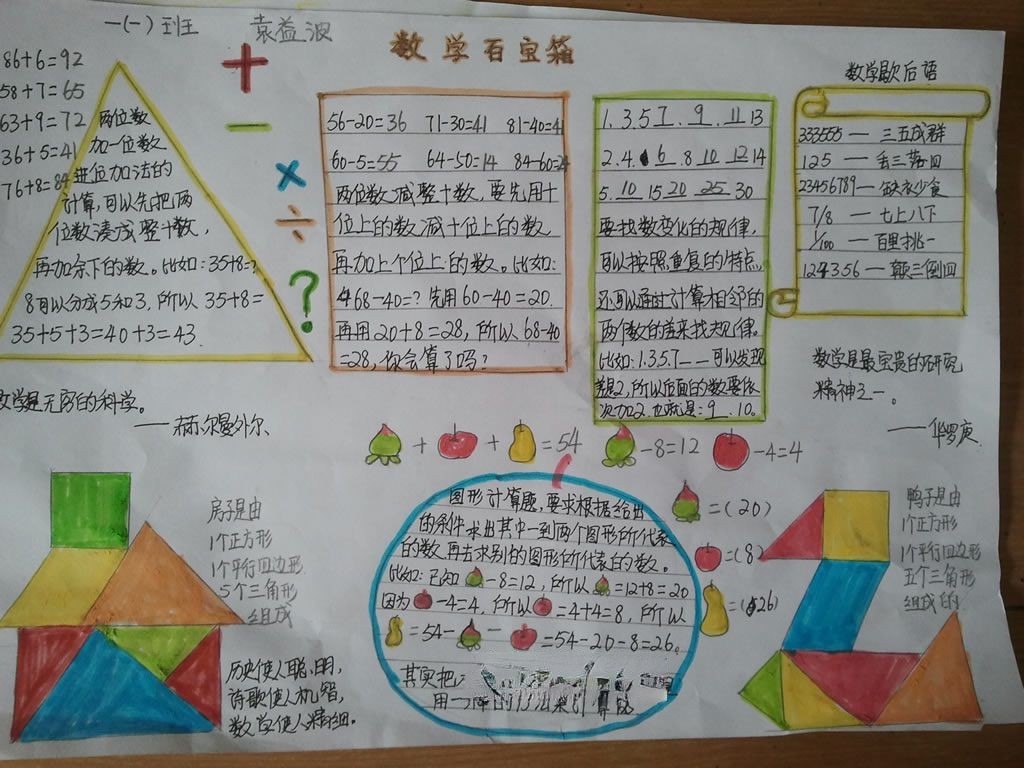 一(一)班 袁益波
数学百宝箱
86+6=92
58+7=65
63+9=72
36+5=41
76+8=84
两位数
加一位数
进位加法的
计算,可以先把两
位数凑成整十数,
再加余下的数。比如:35+8=?
8可以分成5和3,所以35+8=
35+5+3=40+3=43.
+
−
×
÷
?
56-20=36 71-30=41 81-40=41
60-5=55 64-50=14 84-60=24
两位数减整十数,要先用十
位上的数减十位上的数
再加上个位上的数。比如:
68-40=?先用60-40=20.
再用20+8=28,所以68-40
=28,你会算了吗?
1.3.5 7.9.11 13
2.4.6.8 10 12 14
5.10 15 20 25 30
要找数变化的规律,
可以按照重复的特点,
还可以通过计算相邻的
两个数的差来找规律。
比如:1.3.5.7__可以发现
差是2,所以后面的数要依
次加2也就是:9.10。
数学歇后语
333555 — 三五成群
125 — 丢三落四
23456789 — 缺衣少食
7/8 — 七上八下
1/100 — 百里挑一
124356 — 颠三倒四
数学是无穷的科学。
——赫尔曼外尔
数学是最宝贵的研究
精神之一。
——华罗庚
+ + =54 -8=12 -4=4
=(20)
=(8)
=(26)
图形计算题,要求根据给出
的条件求出其中一到两个图形所代表
的数,再去求别的图形所代表的数。
比如:已知 -8=12,所以 =12+8=20
因为 -4=4,所以 =4+4=8,所以
=54- - =54-20-8=26。
其实把
房子是由
1个正方形
1个平行四边形
5个三角形
组成
历史使人聪明,
诗歌使人机智,
数学使人精细。
鸭子是由
1个正方形
1个平行四边形
五个三角形
组成的